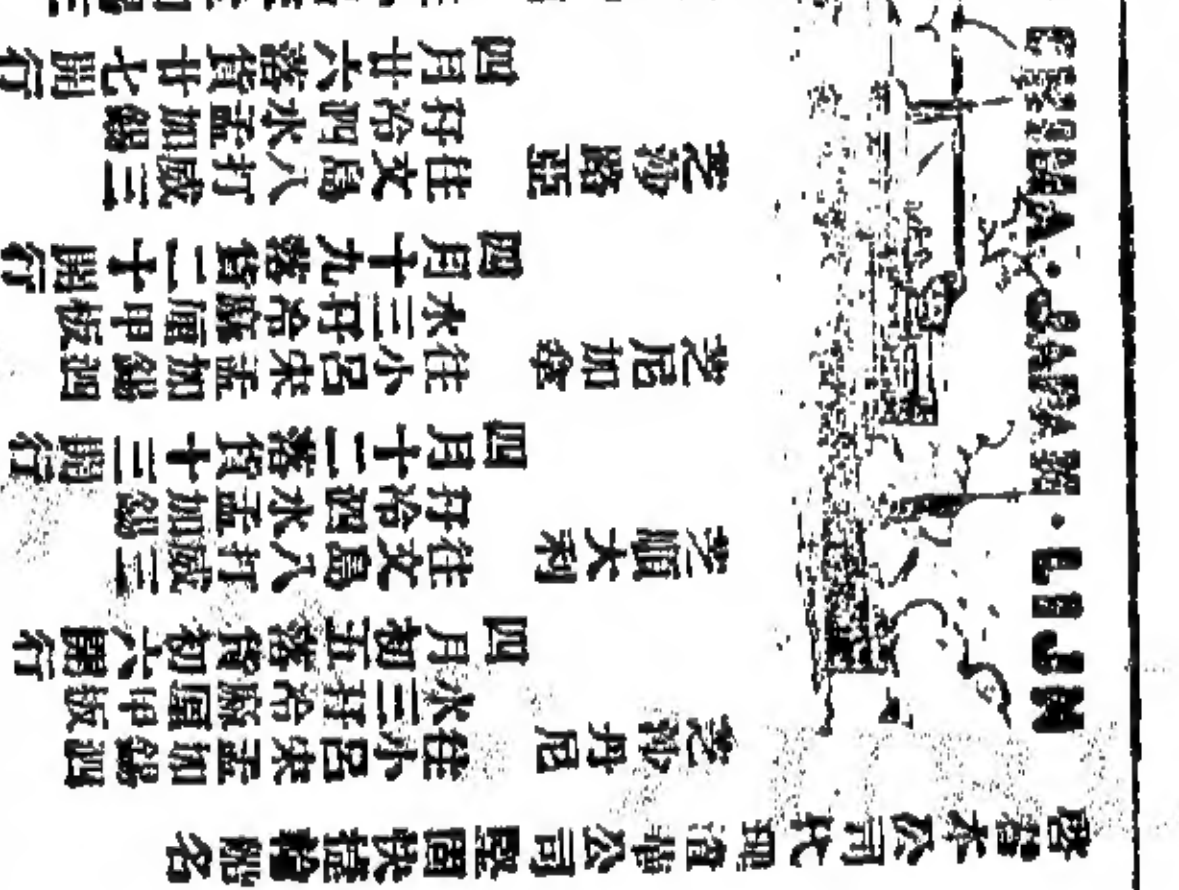 CHINA·JAPAN·LIJN
啓者本公司代理渣華公司堅固快捷輪船名
芝沙丹尼
往小呂宋孟加錫泗
水三孖冷蔴厘甲板
四月初五落貨初六開行
芝順大利
往文島八打威三
孖冷泗水孟加錫
四月十二落貨十三開行
芝尼加拿
往小呂宋孟加錫泗
水三孖冷蔴厘甲板
四月十九落貨二十開行
芝沙路亞
往文島八打威三
孖冷泗水孟加錫
四月廿六落貨廿七開行